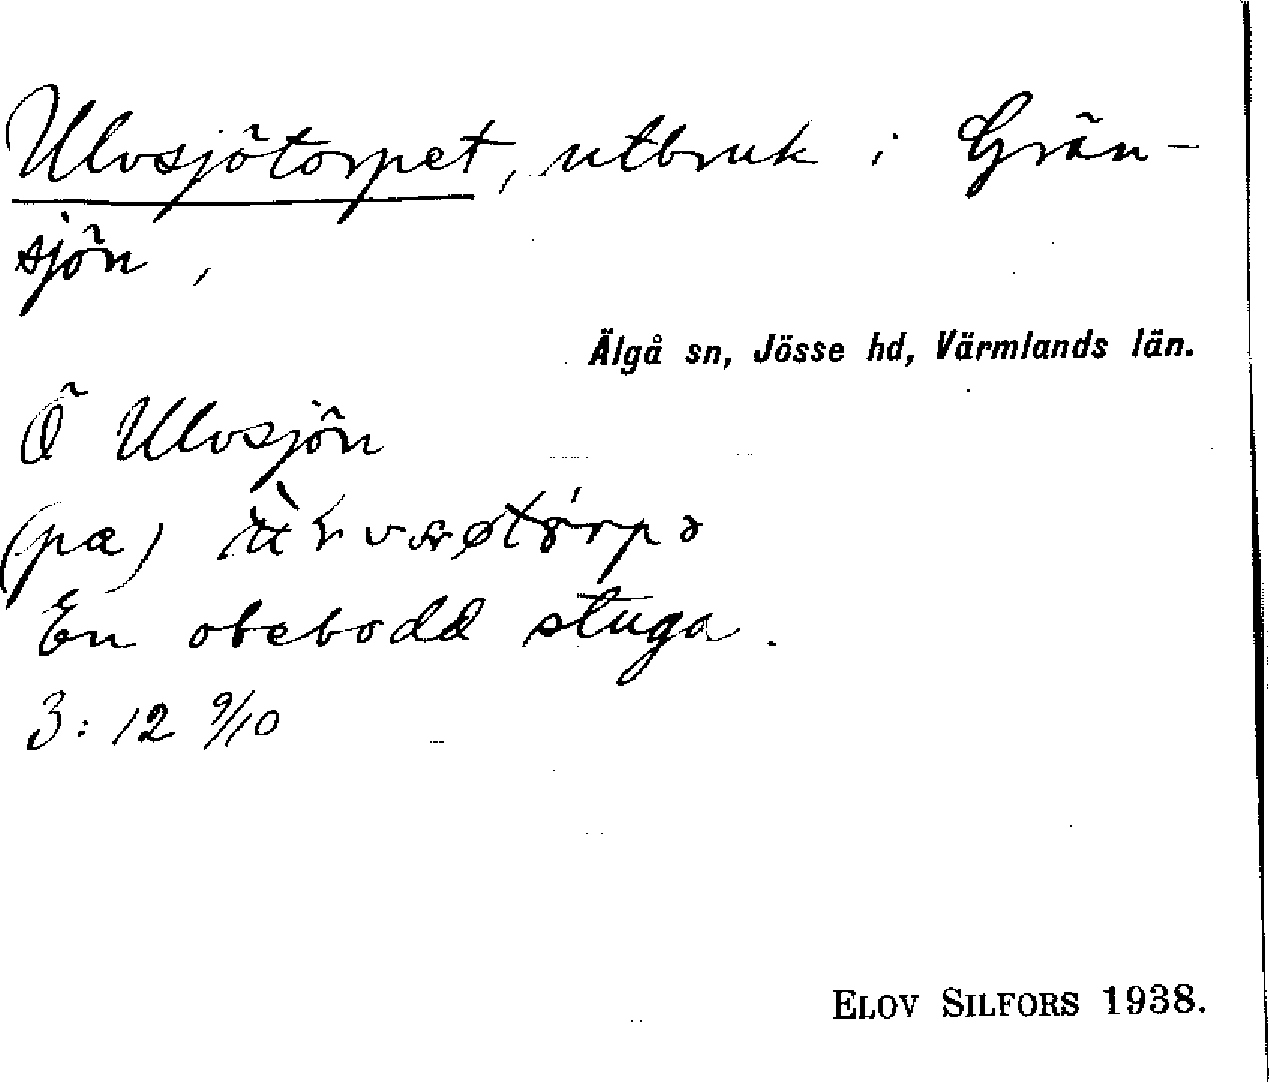 Ulvsjötorpet, utbruk i Grän-
sjön,
Älgå sn, Jösse hd, Värmlands län.
Ö Ulvsjön
(pæ)
En obebodd stuga.
3: 12 9/10
ELOV SILFORS 1938.